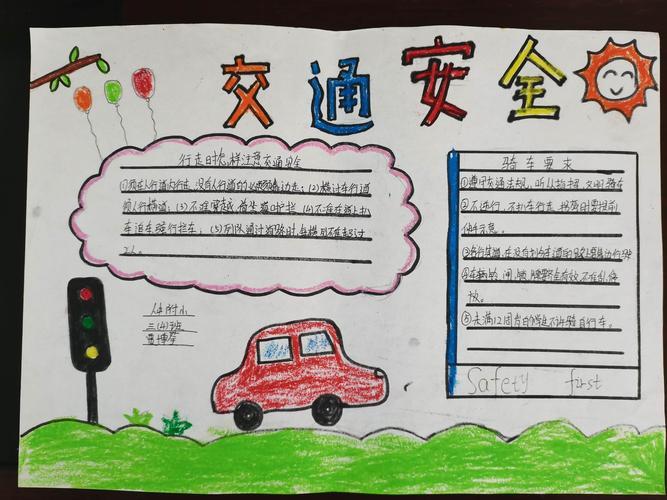 交通安全
行走时怎样注意交通安全
(1)须在人行道内行走,没有人行道的必须靠路边走;(2)横过车行道
须人行横道;(3)不准穿越、倚坐道口护栏;(4)不准在路上扒
车追车强行拦车;(5)列队通过道路时,每横列不准超过
2人。
骑车要求
①遵守交通法规,听从指挥,文明骑车
②不逆行,不扒车行走,拐弯时要提前
伸手示意。
③各行其道,在没有划分车道的路上要靠边行驶
放。
⑤未满12周岁的儿童不许骑自行车。
附小
三(4)班
Safety first